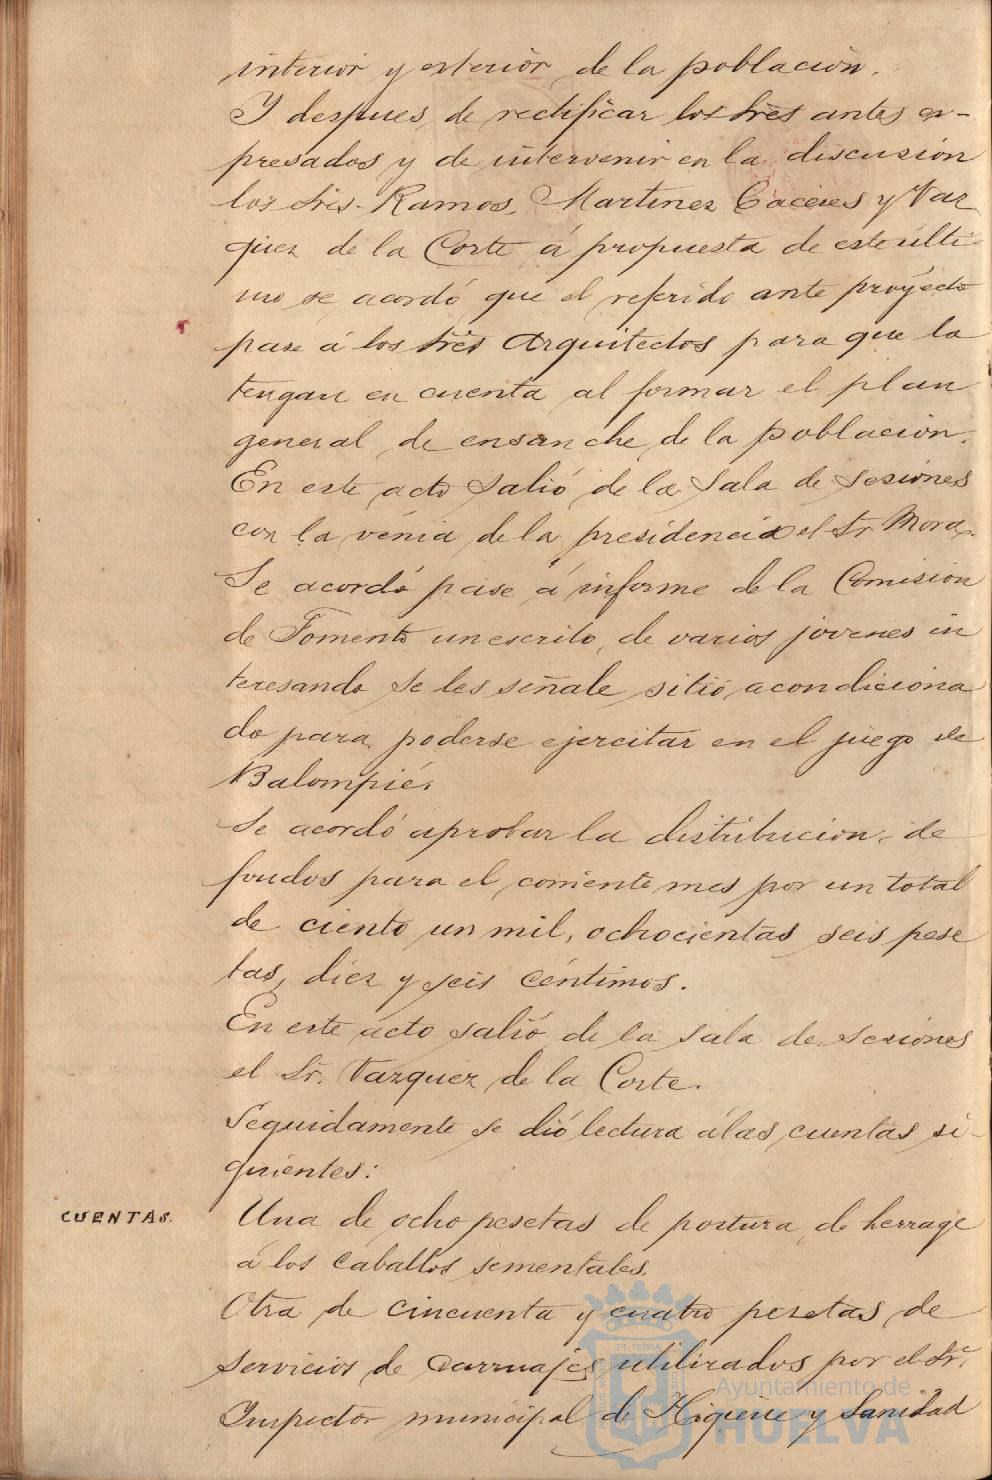 interior y esterior de la poblacion.
Y despues de rectificar los Sres antes ex-
presados y de intervenir en la discusion
los Sres. Ramos, Martinez Caceres y Vaz
quez de la Corte á propuesta de este ulti-
mo se acordó que el referido ante proyecto
pase á los Sres Arquitectos para que la
tengan en cuenta al formar el plan
general de ensanche de la poblacion.
En este acto salió de la Sala de Sesiones
con la venia de la presidencia el Sr Mora.
Se acordó pase á informe de la Comision
de Fomento un escrito, de varios jovenes in
teresando se les señale sitio acondiciona
do para poderse ejercitar en el juego de
Balompié.
Se acordó aprobar la distribucion de
fondos para el corriente mes por un total
de ciento un mil, ochocientas seis pese
tas, diez y seis céntimos.
En este acto salió de la sala de Sesiones
el Sr. Vazquez de la Corte.
Seguidamente se dió lectura á las cuentas si-
guientes:
CUENTAS. Una de ocho pesetas de postura de herrage
á los caballos sementales.
Otra de cincuenta y cuatro pesetas de
servicios de carruajes utilizados por el Sr.
Inspector municipal de Higiene y Sanidad
Ayuntamiento de
HUELVA